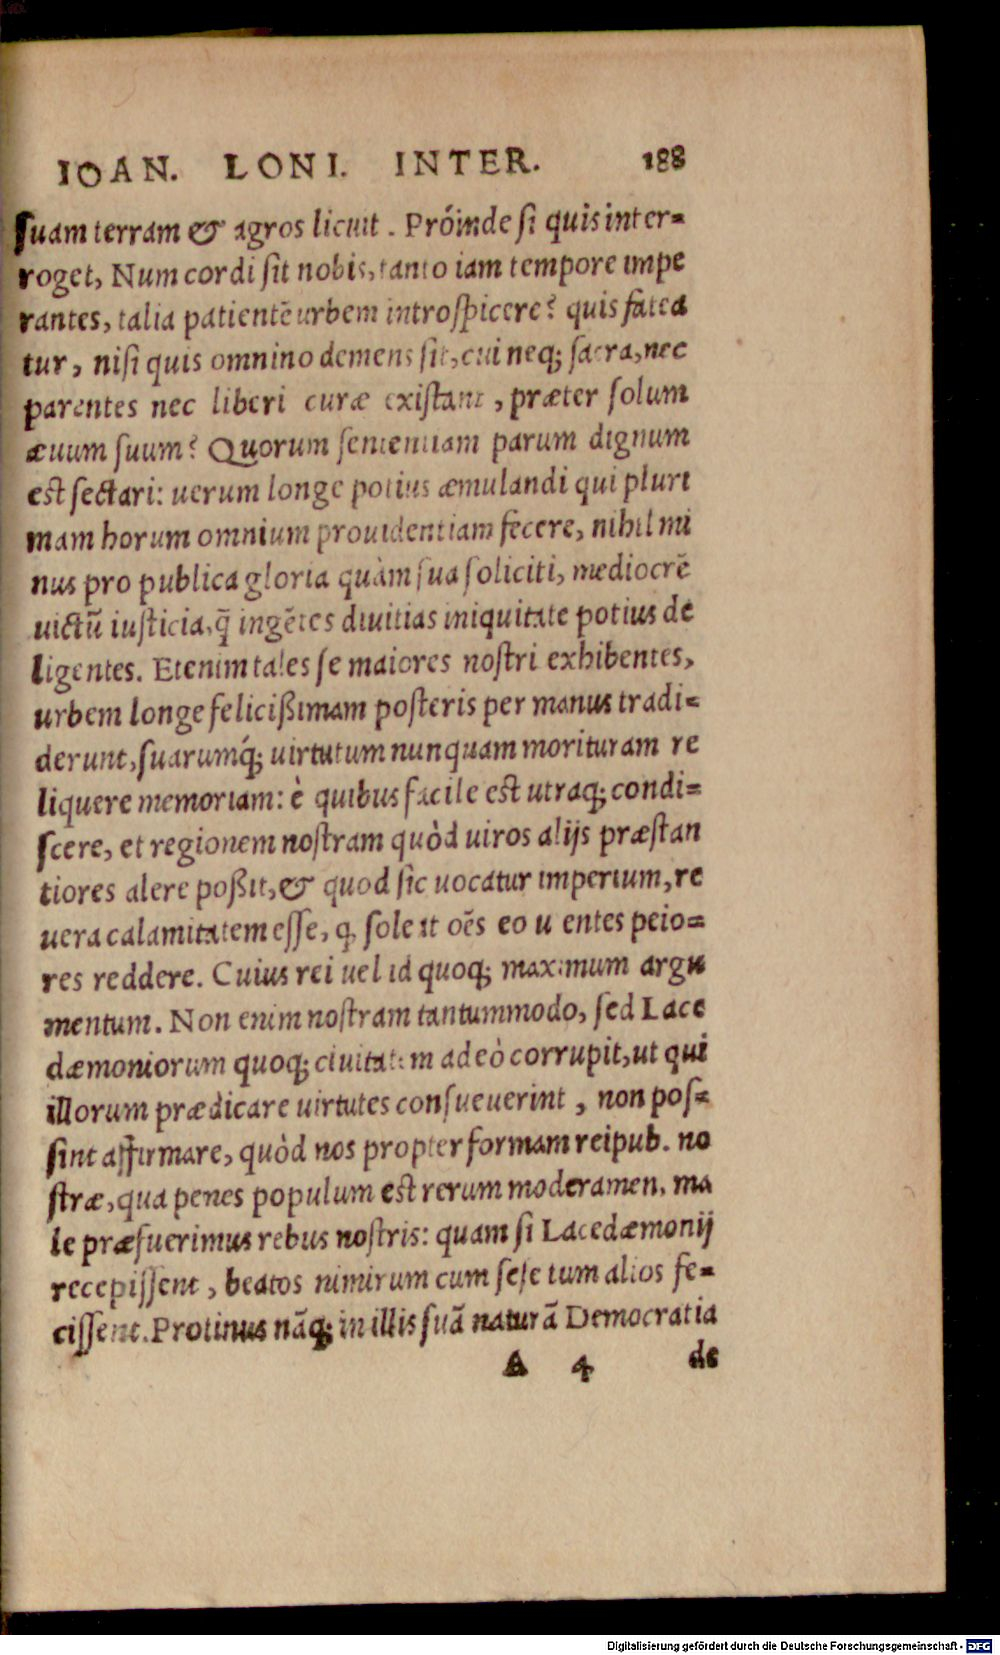 IOAN. LONI. INTER. 188
suam terram & agros licuit. Próinde si quis inter=
roget, Num cordi sit nobis, tanto iam tempore impe
rantes, talia patientē urbem introspicere? quis fatea
tur, nisi quis omnino demens sit, cui neq; sacra, nec
parentes nec liberi curæ existant, præter solum
æuum suum? Quorum sententiam parum dignum
est sectari: uerum longe potius æmulandi qui pluri
mam horum omnium prouidentiam fecere, nihil mi
nus pro publica gloria quàm sua soliciti, mediocrē
uictū iusticia, q̄ ingētes diuitias iniquitate potius de
ligentes. Etenim tales se maiores nostri exhibentes,
urbem longe felicißimam posteris per manus tradi=
derunt, suarumq́; uirtutum nunquam morituram re
liquere memoriam: è quibus facile est utraq; condi=
scere, et regionem nostram quòd uiros alijs præstan
tiores alere poßit, & quod sic uocatur imperium, re
uera calamitatem esse, q̨ soleat oēs eo utentes peio=
res reddere. Cuius rei uel id quoq; maximum argu
mentum. Non enim nostram tantummodo, sed Lace
dæmoniorum quoq; ciuitatem adeò corrupit, ut qui
illorum prædicare uirtutes consueuerint, non pos=
sint affirmare, quòd nos propter formam reipub. no
stræ, qua penes populum est rerum moderamen, ma
le præfuerimus rebus nostris: quam si Lacedæmonij
recepissent, beatos nimirum cum sese tum alios fe=
cissent. Protinus nāq; in illis suā naturā Democratia
A 4 de
Digitalisierung gefördert durch die Deutsche Forschungsgemeinschaft - DFG